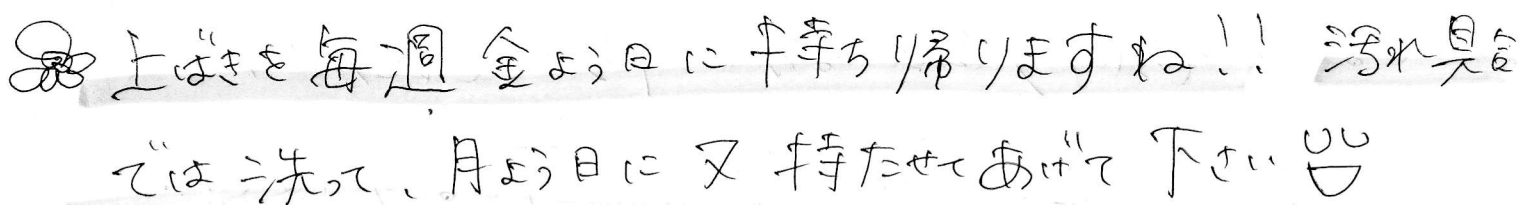 上ばきを毎週金よう日に持ち帰りますね!! 汚れ具合
では洗って、月よう日に又持たせてあげて下さい